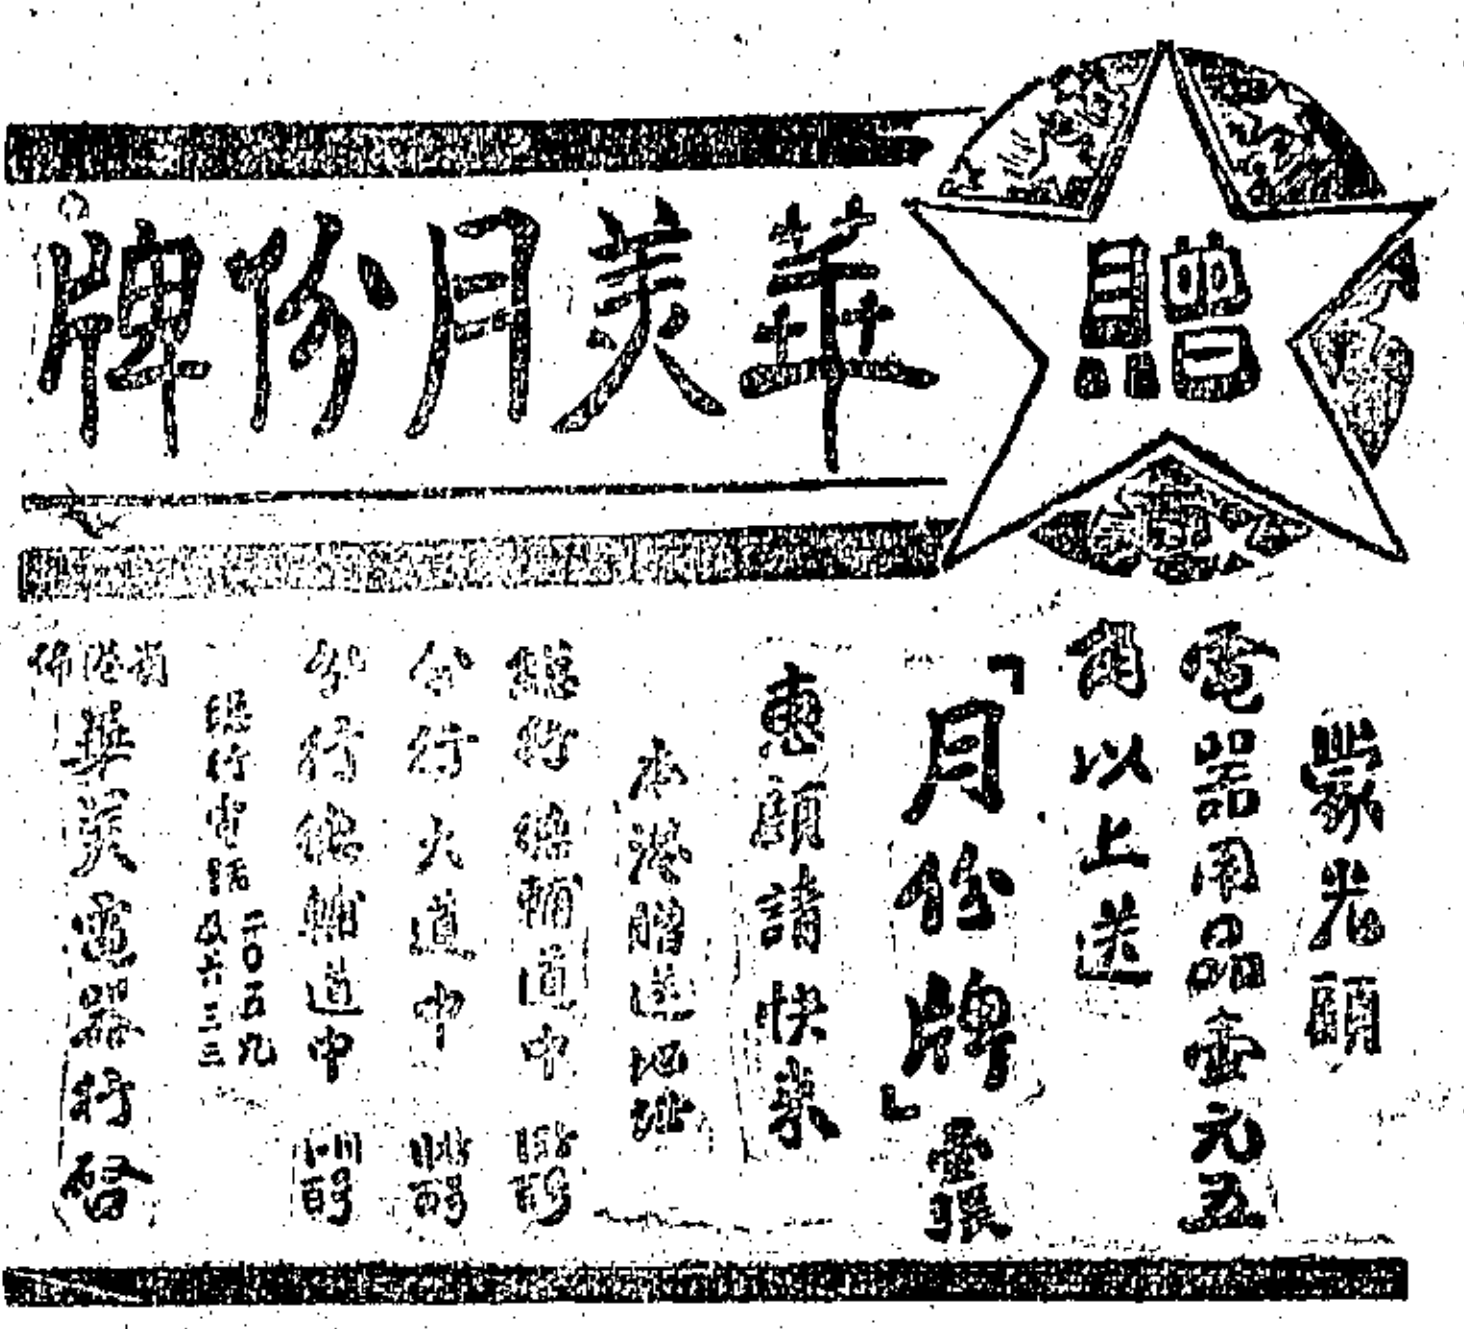 贈
華美月份牌
蒙光顧
電器用品壹元五
角以上送
「月份牌」壹張
惠顧請快來
本港贈送地址
總行德輔道中
分行大道中
分行德輔道中
總行電話
二〇五九
五六三三
省港
華美電器行啓